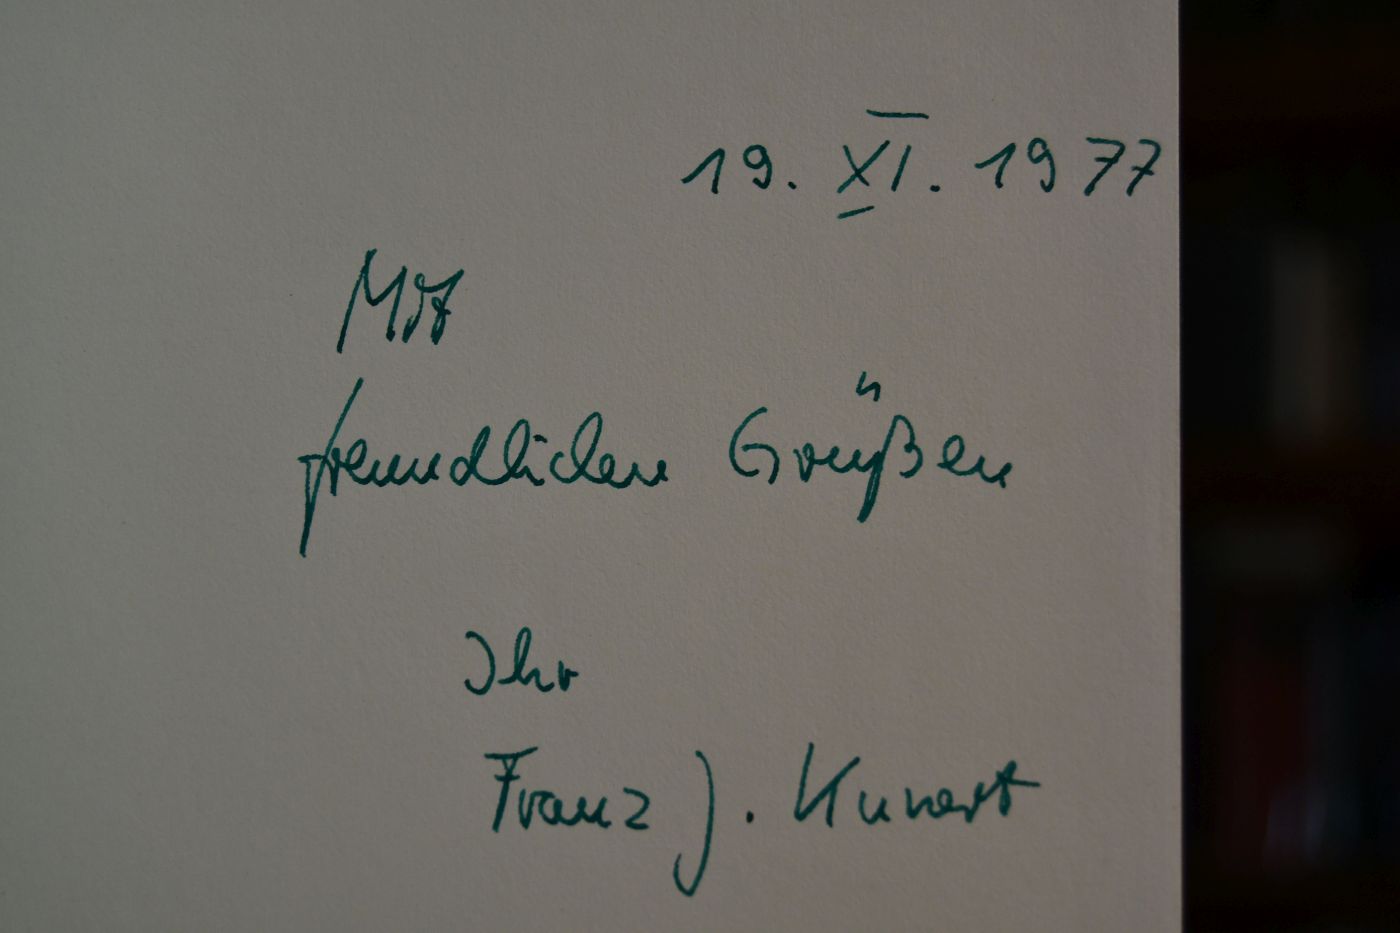 19. XI. 1977
Mit
freundlichen Grüßen
Ihr
Franz J.